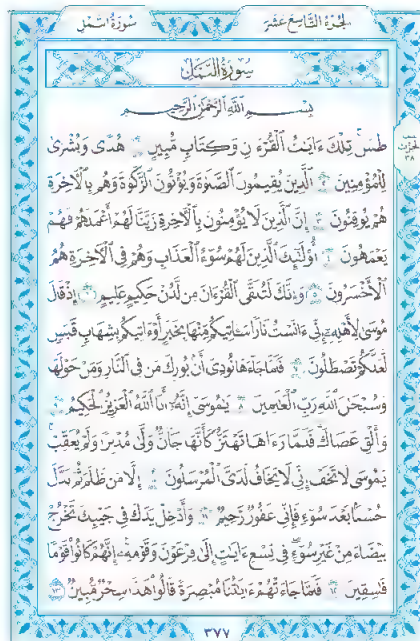 الجزء التاسع عشر سورة النمل
سورة النمل
بِسْمِ اللَّهِ الرَّحْمَٰنِ الرَّحِيمِ
طسٓ تِلْكَ ءَايَٰتُ الْقُرْءَانِ وَكِتَابٍ مُّبِينٍ ١ هُدًى وَبُشْرَىٰ
لِلْمُؤْمِنِينَ ٢ الَّذِينَ يُقِيمُونَ الصَّلَوٰةَ وَيُؤْتُونَ الزَّكَوٰةَ وَهُم بِالْءَاخِرَةِ
هُمْ يُوقِنُونَ ٣ إِنَّ الَّذِينَ لَا يُؤْمِنُونَ بِالْءَاخِرَةِ زَيَّنَّا لَهُمْ أَعْمَٰلَهُمْ فَهُمْ
يَعْمَهُونَ ٤ أُو۟لَٰٓئِكَ الَّذِينَ لَهُمْ سُوٓءُ الْعَذَابِ وَهُمْ فِي الْءَاخِرَةِ هُمُ
الْأَخْسَرُونَ ٥ وَإِنَّكَ لَتُلَقَّى الْقُرْءَانَ مِن لَّدُنْ حَكِيمٍ عَلِيمٍ ٦ إِذْ قَالَ
مُوسَىٰ لِأَهْلِهِۦٓ إِنِّيٓ ءَانَسْتُ نَارًا سَـَٔاتِيكُم مِّنْهَا بِخَبَرٍ أَوْ ءَاتِيكُم بِشِهَابٍ قَبَسٍ
لَّعَلَّكُمْ تَصْطَلُونَ ٧ فَلَمَّا جَآءَهَا نُودِيَ أَنۢ بُورِكَ مَن فِي النَّارِ وَمَنْ حَوْلَهَا
وَسُبْحَٰنَ اللَّهِ رَبِّ الْعَٰلَمِينَ ٨ يَٰمُوسَىٰٓ إِنَّهُۥٓ أَنَا اللَّهُ الْعَزِيزُ الْحَكِيمُ ٩
وَأَلْقِ عَصَاكَ فَلَمَّا رَءَاهَا تَهْتَزُّ كَأَنَّهَا جَآنٌّ وَلَّىٰ مُدْبِرًا وَلَمْ يُعَقِّبْ
يَٰمُوسَىٰ لَا تَخَفْ إِنِّي لَا يَخَافُ لَدَيَّ الْمُرْسَلُونَ ١٠ إِلَّا مَن ظَلَمَ ثُمَّ بَدَّلَ
حُسْنًۢا بَعْدَ سُوٓءٍ فَإِنِّي غَفُورٌ رَّحِيمٌ ١١ وَأَدْخِلْ يَدَكَ فِي جَيْبِكَ تَخْرُجْ
بَيْضَآءَ مِنْ غَيْرِ سُوٓءٍ فِي تِسْعِ ءَايَٰتٍ إِلَىٰ فِرْعَوْنَ وَقَوْمِهِۦٓ إِنَّهُمْ كَانُوا۟ قَوْمًا
فَٰسِقِينَ ١٢ فَلَمَّا جَآءَتْهُمْ ءَايَٰتُنَا مُبْصِرَةً قَالُوا۟ هَٰذَا سِحْرٌ مُّبِينٌ ١٣
٣٧٧